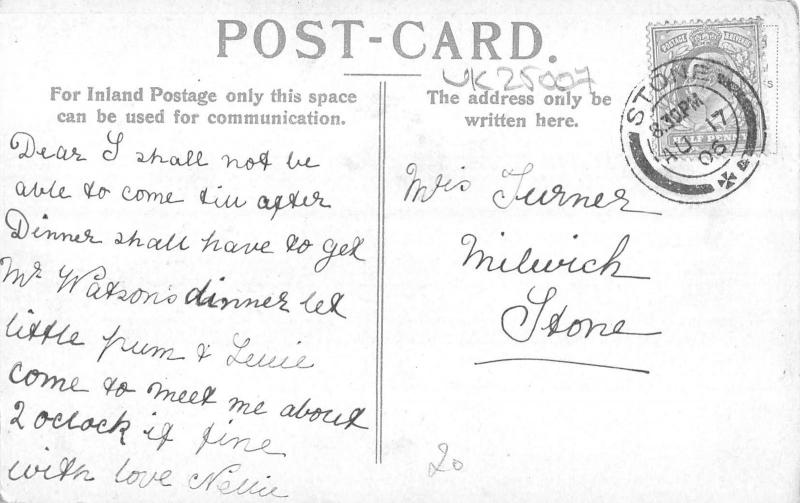 POST-CARD.
UK25007
For Inland Postage only this space
can be used for communication.
The address only be
written here.
STONE
8.30PM
AU 17
06
HALF PENNY
Dear I shall not be
able to come till after
Dinner shall have to get
Mr Watsons dinner let
little pum &
come to meet me about
2 oclock if fine
with love Nellie
Mrs Turner
Milwich
Stone
20